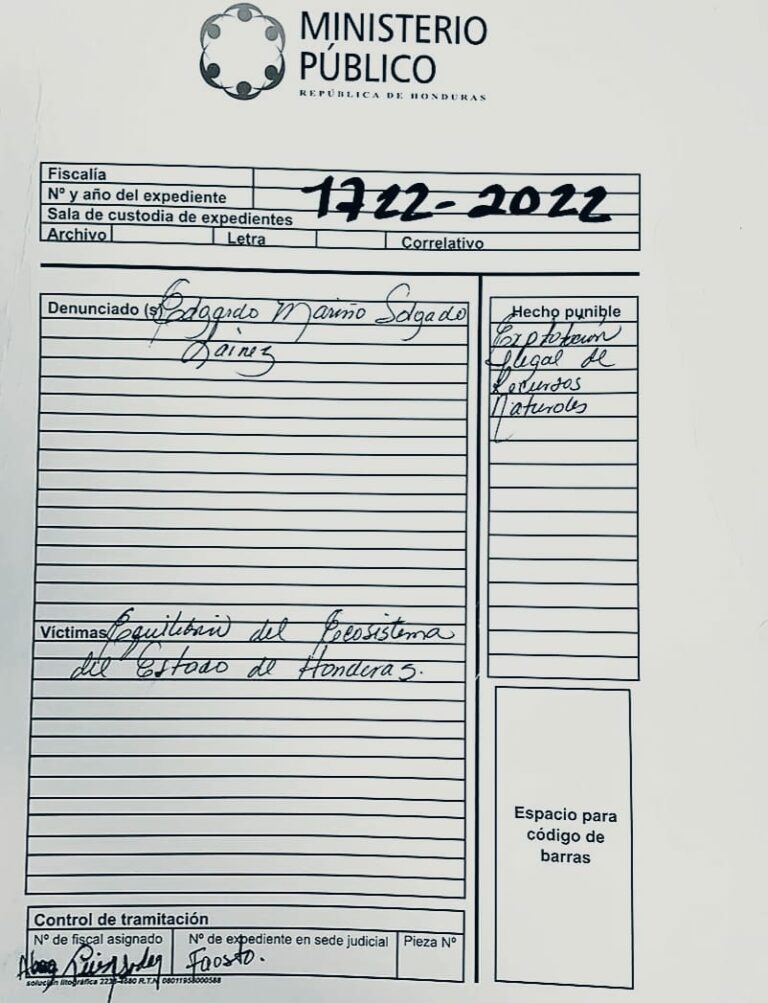 MINISTERIO
PÚBLICO
REPÚBLICA DE HONDURAS
Fiscalía
Nº y año del expediente
1722-2022
Sala de custodia de expedientes
Archivo Letra Correlativo
Denunciado (s) Edgardo Mariño Solgado
Lainez
Hecho punible
Explotación
Ilegal de
Recursos
Naturales
Víctimas Equilibrio del Ecosistema
del Estado de Honduras.
Espacio para
código de
barras
Control de tramitación
Nº de fiscal asignado Nº de expediente en sede judicial Pieza Nº
Abog Faosto.
solución litográfica